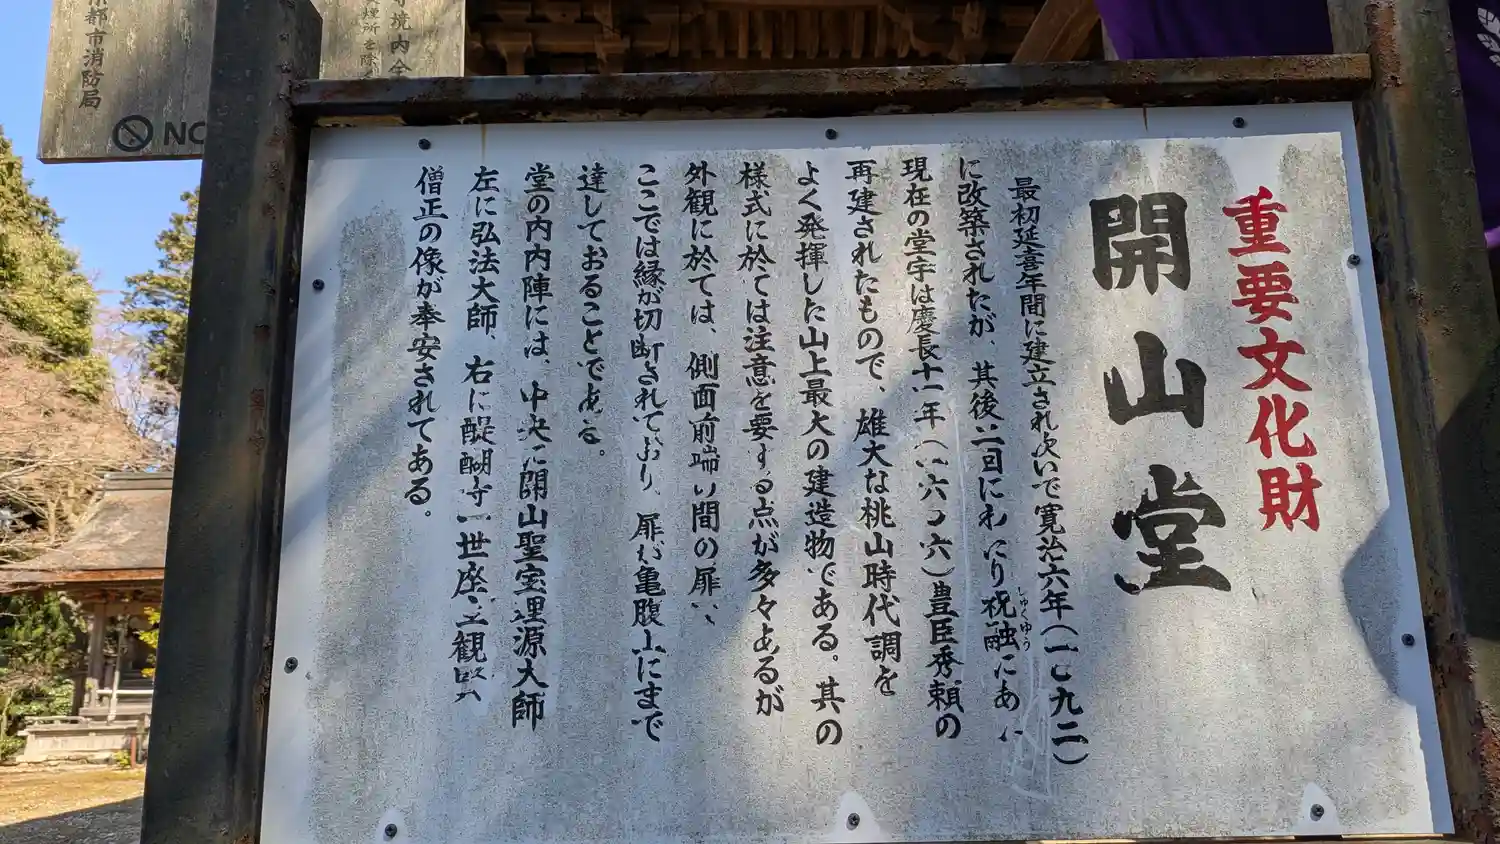 重要文化財
開山堂
最初延喜年間に建立され次いで寛治六年(一〇九二)
に改築されたが、其後二回にわたり祝融にあい
しゅくゆう
現在の堂宇は慶長十一年(一六〇六)豊臣秀頼の
再建されたもので、雄大な桃山時代調を
よく発揮した山上最大の建造物である。其の
様式に於ては注意を要する点が多々あるが
外観に於ては、側面前端の間の扉が、
ここでは縁が切断されており、扉が亀腹上にまで
達しておることである。
堂の内内陣には、中央に開山聖宝理源大師
左に弘法大師、右に醍醐寺一世座主観賢
僧正の像が奉安されてある。
寺境内全
煙所を除く
京都市消防局
NO